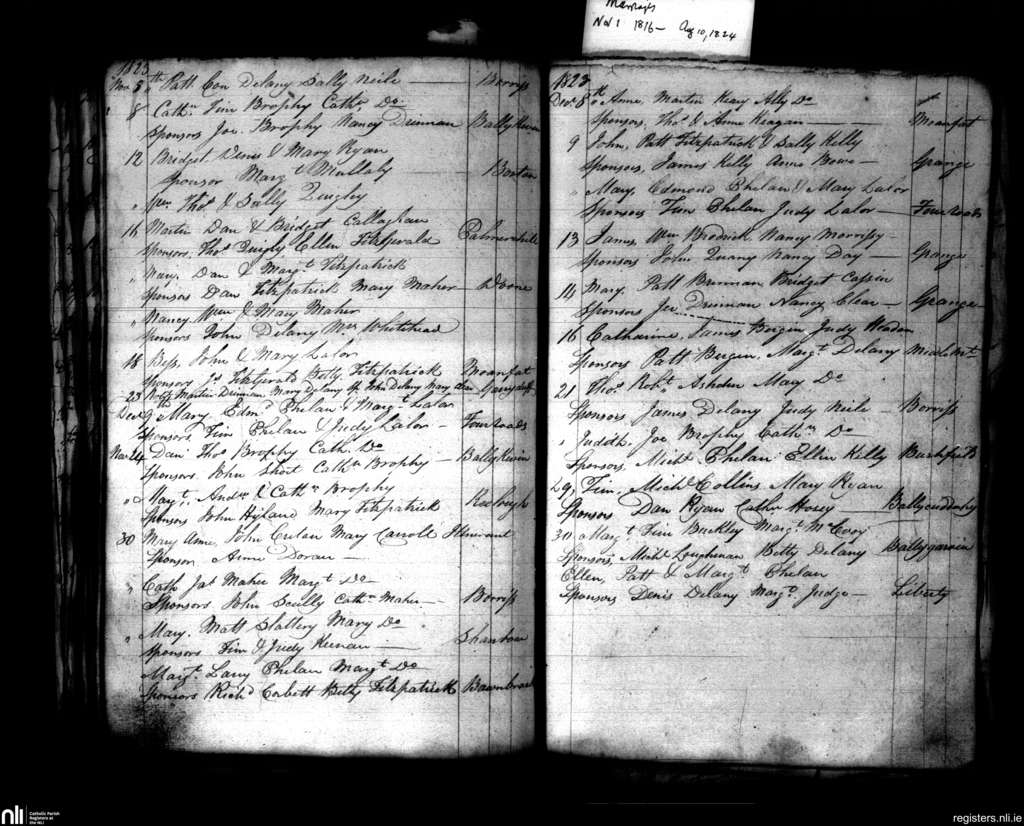 Marriages
Nov 1 1816 – Aug 10, 1824
1823
Nov. 5th Patt Con Delany Sally Neile — Borriss
8 Cathn. Tim Brophy Cathn. Do.
Sponsors Joe. Brophy Nancy Drinnan Bally Kevin
12 Bridget Denis & Mary Ryan
Sponsor Margt Mullaly
" Thos. & Sally Quigley
16 Martin Dan & Bridget Callaghan
Sponsors, Thos Quigly Ellen Fitzgerald Palmershill
" Mary. Dan & Margt. Fitzpatrick
Sponsors Dan Fitzpatrick Mary Maher — Doone
" Nancy Wm & Mary Maher
Sponsors John Delany Mrs Whitehead
18 Bess, John & Mary Lalor
Sponsors Js Fitzgerald Betty Fitzpatrick
23 Martin Drinnan Mary Delany John Delany Mary
Decr. 9 Mary, Edmd Phelan & Margt. Lalor
Sponsors, Tim Phelan & Judy Lalor — Fourroads
Novr 24 Dan Thos Brophy Cath. Do
Sponsors. John Short Cathn Brophy — Bally Kevin
" Margt. Andw & Cathn Brophy
Sponsors John Hyland Mary Fitzpatrick
30 Mary Anne. John Mary Carroll Itinerant
Sponsor Anne Doran —
" Cath Jas Maher Margt Do —
Sponsors John Scully Cathn Maher — Borriss
" Mary. Matt Slattery Mary Do
Sponsors Tim & Judy Keenan —
Margt. Lany Phelan Margt Do
Sponsors Richd Corbett Betty Fitzpatrick
1823
Decr. 8th Anne, Martin Keary Ally Do
Sponsors, Thos & Anne Keagan —
9 John, Patt Fitzpatrick & Sally Kelly
Sponsors, James Kelly Anne Bowe — Grange
" Mary, Edmond Phelan & Mary Lalor
Sponsors Tim Phelan Judy Lalor — Fourroads
13 James, Wm Brodrick Nancy Morrissy —
Sponsors John Nancy Day — Grange
14 Mary, Patt Brennan Bridget Cassin
Sponsors Joe Drinnan Nancy Clear — Grange
16 Catharine, James Bergin Judy
Sponsors Patt Bergin, Margt. Delany
21 Thos. Robt. Mary Do
Sponsors James Delany Judy Neile — Borriss
" Judith Joe Brophy Cathn Do
Sponsors, Michl Phelan Ellen Kelly
29, Tim, Michl Collins, Mary Ryan
Sponsors Dan Ryan Cathn Hosey — Ballycuddahy
30 " Margt Tim Buckley Margt. McEvoy
Sponsors, Michl Loughman Betty Delany Ballygarvin
Ellen, Patt & Margt Phelan
Sponsors Denis Delany Margt. Judge — Liberty
nli
Catholic Parish
Registers at
the NLI
registers.nli.ie